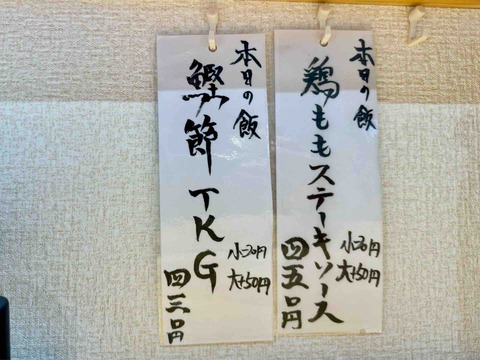 本日の飯
鶏ももステーキソース
大+50円
四五〇円
本日の飯
鰹節TKG
大+50円
四三〇円